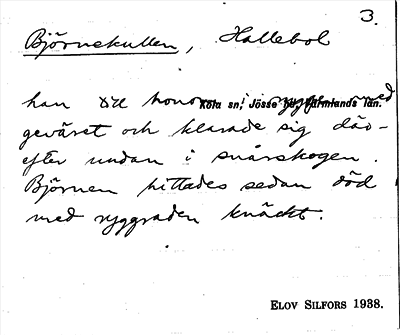 3.
Björnekullen, Hallebol
Köla sn, Jösse hd, Värmlands län.
han till honom i ryggen med
geväret och klarade sig där-
efter undan i snårskogen.
Björnen hittades sedan död
med ryggraden knäckt.
ELOV SILFORS 1938.